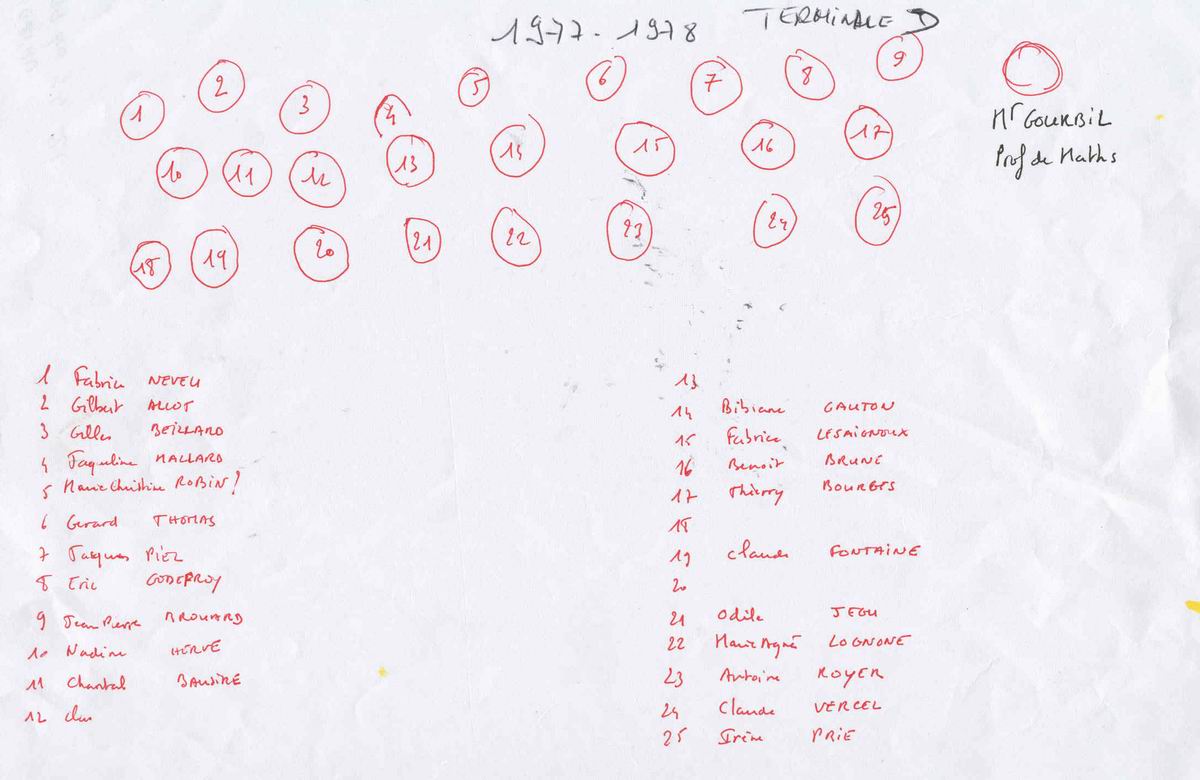 1977-1978 TERMINALE D
1 2 3 4 5 6 7 8 9
Mr GOURBIL
Prof de Maths
10 11 12 13 14 15 16 17
18 19 20 21 22 23 24 25
1 Fabrice NEVEU
2 Gilbert ALLOT
3 Gilles BEILLARD
4 Jaqueline MALLARD
5 Marie Christine ROBIN?
6 Gerard THOMAS
7 Jacques PIEL
8 Eric GODEFROY
9 Jean Pierre BROUARD
10 Nadine HERVE
11 Chantal BAUSIRE
12
13
14 Bibiane GAUTON
15 Fabrice LESAIGNOUX
16 Benoit BRUNE
17 Thierry BOURGES
18
19 Claude FONTAINE
20
21 Odile JEGU
22 Marie Agnè LOGNONE
23 Antoine ROYER
24 Claude VERCEL
25 Irène PRIE